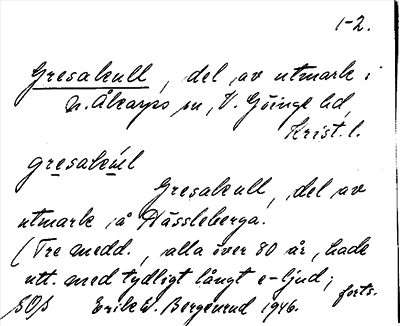 1-2.
Gresakull, del av utmark i
N. Åkarps sn, V. Göinge hd,
Krist. l.
gresakúl
Gresakull, del av
utmark å Hässleberga.
(Tre medd., alla över 80 år, hade
utt. med tydligt långt e-ljud;
forts.
Erik W. Bergenrud 1946.